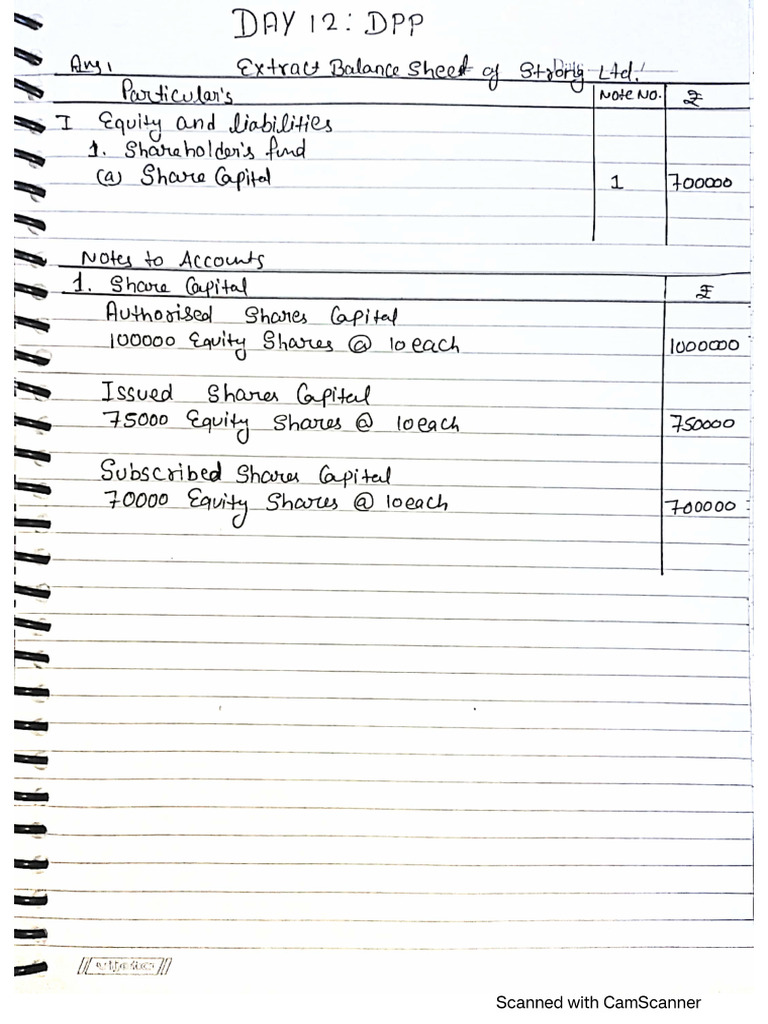 DAY 12: DPP
Ans 1 Extract Balance Sheet of Strong Ltd.
Particular's Note No. ₹
I Equity and liabilities
1. Shareholder's fund
(a) Share Capital 1 700000
Notes to Accounts
1. Share Capital ₹
Authorised Shares Capital
100000 Equity Shares @ 10 each 1000000
Issued Shares Capital
75000 Equity Shares @ 10 each 750000
Subscribed Shares Capital
70000 Equity Shares @ 10 each 700000
Scanned with CamScanner